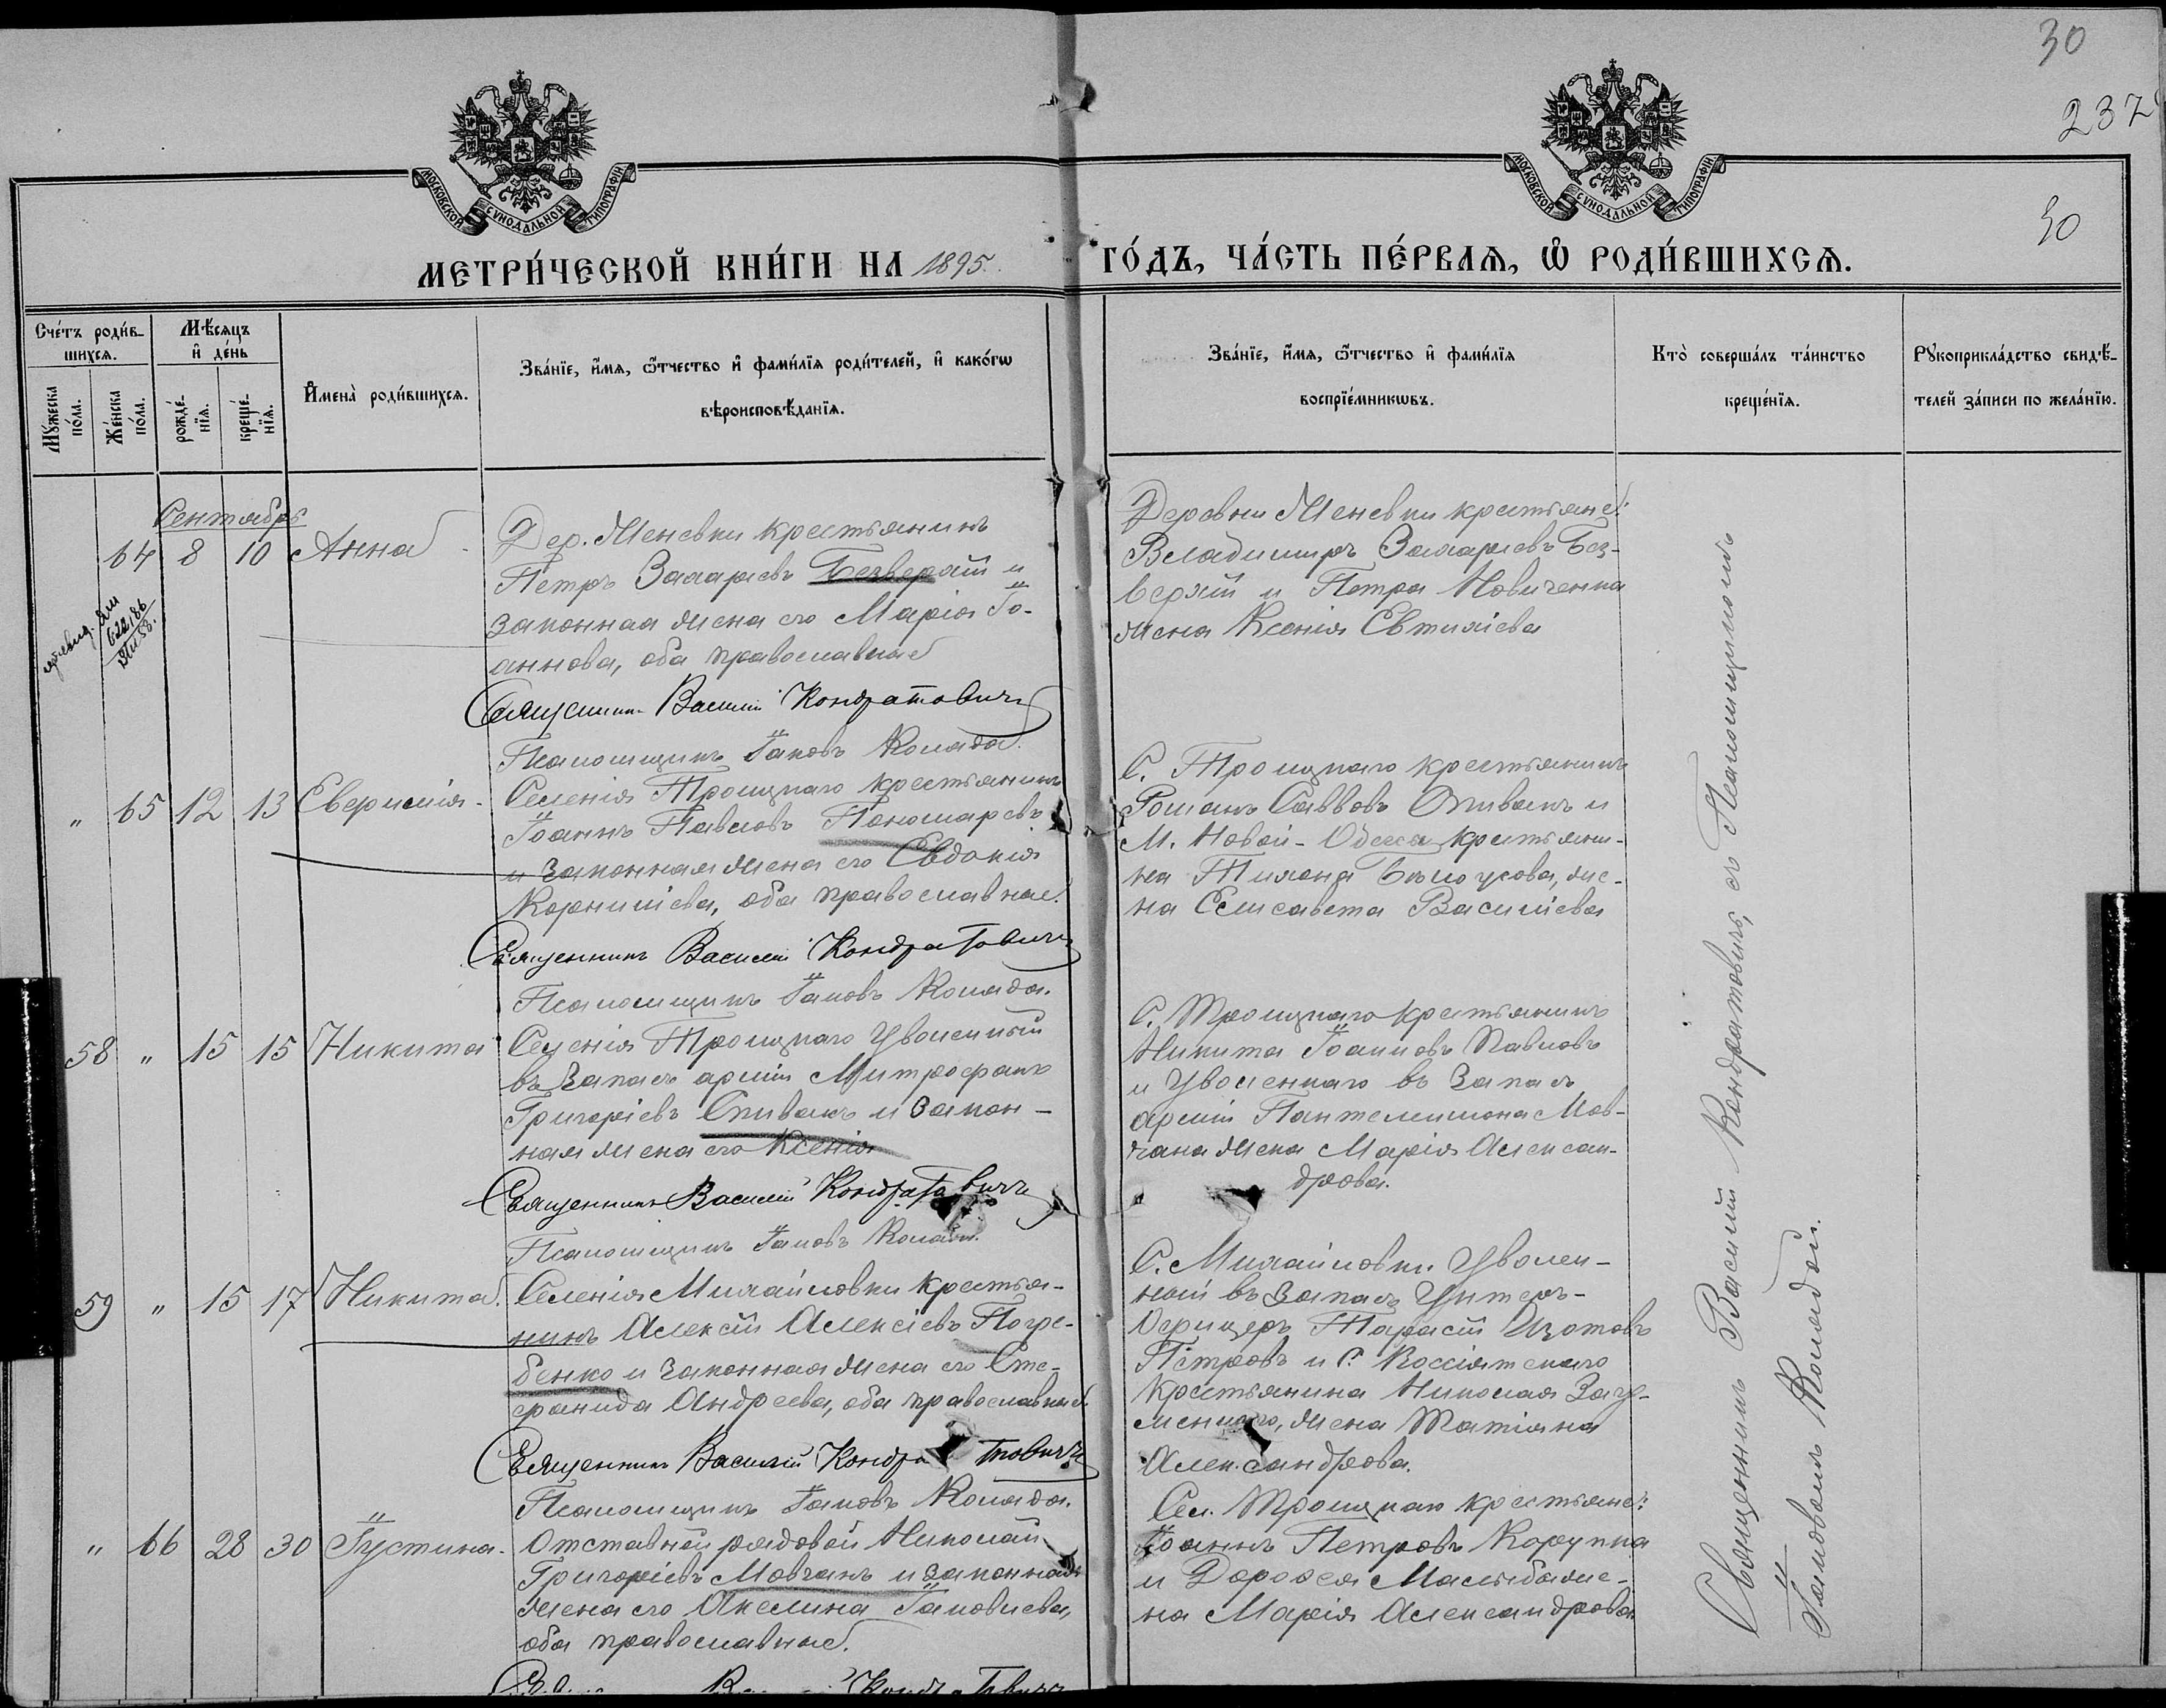 30
237
30
МОСКОВСКОЙ СѴНОДАЛЬНОЙ ТИПОГРАФІИ
МОСКОВСКОЙ СѴНОДАЛЬНОЙ ТИПОГРАФІИ
МЕТРИ́ЧЕСКОЙ КНИ́ГИ НА 1895 ГО́ДЪ, ЧА́СТЬ ПЕ́РВАЯ, Ѽ РОДИ́ВШИХСЯ.
Сче́тъ роди́в-
шихся.
Му́жеска по́ла.
Же́нска по́ла.
Мѣ́сяцъ
и҆ де́нь
рожде́-
нїя.
креще́-
нїя.
И҆мена̀ роди́вшихся.
Зва́нїе, и҆́мя, ѻ҆́тчество и҆ фами́лїя роди́телей, и҆ како́гѡ
вѣроисповѣ́данїя.
Зва́нїе, и҆́мя, ѻ҆́тчество и҆ фами́лїя
воспрїе́мникѡвъ.
Кто̀ соверша́лъ та́инство
креще́нїя.
Рꙋкоприкла́дство свидѣ́-
телей за́писи по жела́нїю.
Сентябрь
64 8 10 Анна
Дер. Меневки крестьянинъ
Петръ Захаріевъ Безверхій и
законная жена его Марія Іо-
аннова, оба православные
Священникъ Василій Кондратовичъ
Псаломщикъ Іаковъ Коляда.
Деревни Меневки крестьяне:
Владимиръ Захаріевъ Без-
верхій и Петра Новиченка
жена Ксенія Евтихіева
" 65 12 13 Евфимія.
Селенія Троицкаго крестьянинъ
Іоаннъ Павловъ Пономаревъ
и законная жена его Евдокія
Корниліева, оба православные.
Священникъ Василій Кондратовичъ
Псаломщикъ Іаковъ Коляда.
С. Троицкаго крестьянинъ
Романъ Саввовъ Спивакъ и
М. Новой-Одессы крестьяни-
на Тихона Бѣлоусова, же-
на Елисавета Василіева
58 " 15 15 Никита
Селенія Троицкаго Уволенный
въ Запасъ арміи Митрофанъ
Григоріевъ Спивакъ и Закон-
ная жена его Ксенія
Священникъ Василій Кондратовичъ
Псаломщикъ Іаковъ Коляда.
С. Троицкаго крестьянинъ
Никита Іоанновъ Павловъ
и Уволеннаго въ Запасъ
арміи Пантелеимона Мов-
чана жена Марія Алексан-
дрова.
59 " 15 17 Никита.
Селенія Михайловки крестья-
нинъ Алексій Алексіевъ Погре-
бенко и законная жена его Сте-
фанида Андреева, оба православные.
Священникъ Василій Кондратовичъ
Псаломщикъ Іаковъ Коляда.
С. Михайловки Уволен-
ный въ Запасъ Унтеръ-
Офицеръ Тарасій Изотовъ
Петровъ и С. Кассіятскаго
крестьянина Николая
жена Татіяна
Александрова.
" 66 28 30 Іустина.
Отставной рядовой Николай
Григоріевъ Мовчанъ и законная
жена его Акелина Іаковлева,
оба православные.
Сел. Троицкаго крестьяне:
Іоаннъ Петровъ
и Дорофея же-
на Марія Александрова
Священникъ Василій Кондратовичъ, съ Псаломщикомъ
Іаковомъ Колядой.